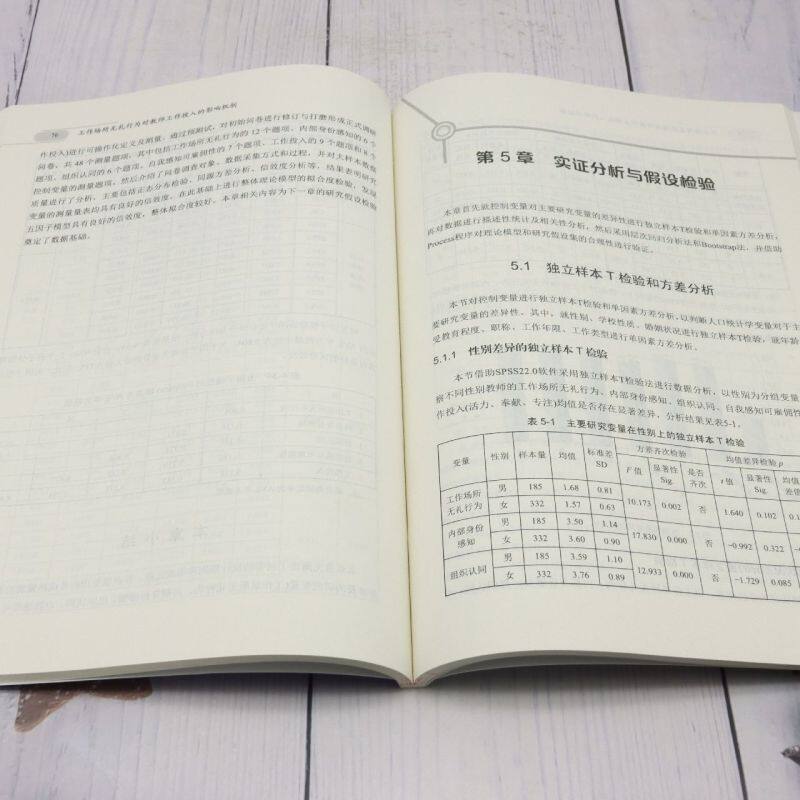 76 工作场所无礼行为对教师工作投入的影响机制
作投入)进行可操作化定义及测量。通过预测试，对初始问卷进行修订与打磨形成正式调研
问卷，共48个测量题项，其中包括工作场所无礼行为的12个题项、内部身份感知的6个
题项、组织认同的6个题项、自我感知可雇佣性的7个题项、工作投入的9个题项和8个
控制变量的测量题项。然后介绍了问卷调查对象、数据采集方式和过程，并对大样本数据
质量进行了分析，主要包括正态分布检验、同源方差分析、信效度分析等，结果表明研究
变量的测量量表均具有良好的信效度。在此基础上进行整体理论模型的拟合度检验，发现
五因子模型具有良好的信效度，整体拟合度较好。本章相关内容为下一章的研究假设检验
奠定了数据基础。
第5章 实证分析与假设检验
本章首先就控制变量对主要研究变量的差异性进行独立样本T检验和单因素方差分析，
再对数据进行描述性统计及相关性分析，然后采用层次回归分析法和Bootstrap法，并借助
Process程序对理论模型和研究假设集的合理性进行验证。
5.1 独立样本T检验和方差分析
本节对控制变量进行独立样本T检验和单因素方差分析，以判断人口统计学变量对于主
要研究变量的差异性。其中，就性别、学校性质、婚姻状况进行独立样本T检验，就年龄、
受教育程度、职称、工作年限、工作类型进行单因素方差分析。
5.1.1 性别差异的独立样本T检验
本节借助SPSS22.0软件采用独立样本T检验法进行数据分析，以性别为分组变量
察不同性别教师的工作场所无礼行为、内部身份感知、组织认同、自我感知可雇佣性
作投入(活力、奉献、专注)均值是否存在显著差异，分析结果见表5-1。
表5-1 主要研究变量在性别上的独立样本T检验
变量 性别 样本量 均值 标准差SD 方差齐次检验 均值差异检验
F值 显著性Sig. 是否齐次 t值 显著性Sig. 均值差值
工作场所无礼行为 男 185 1.68 0.81 10.173 0.002 否 1.640 0.102
女 332 1.57 0.63
内部身份感知 男 185 3.50 1.14 17.830 0.000 否 -0.992 0.322
女 332 3.60 0.90
组织认同 男 185 3.59 1.10 12.933 0.000 否 -1.729 0.085
女 332 3.76 0.89